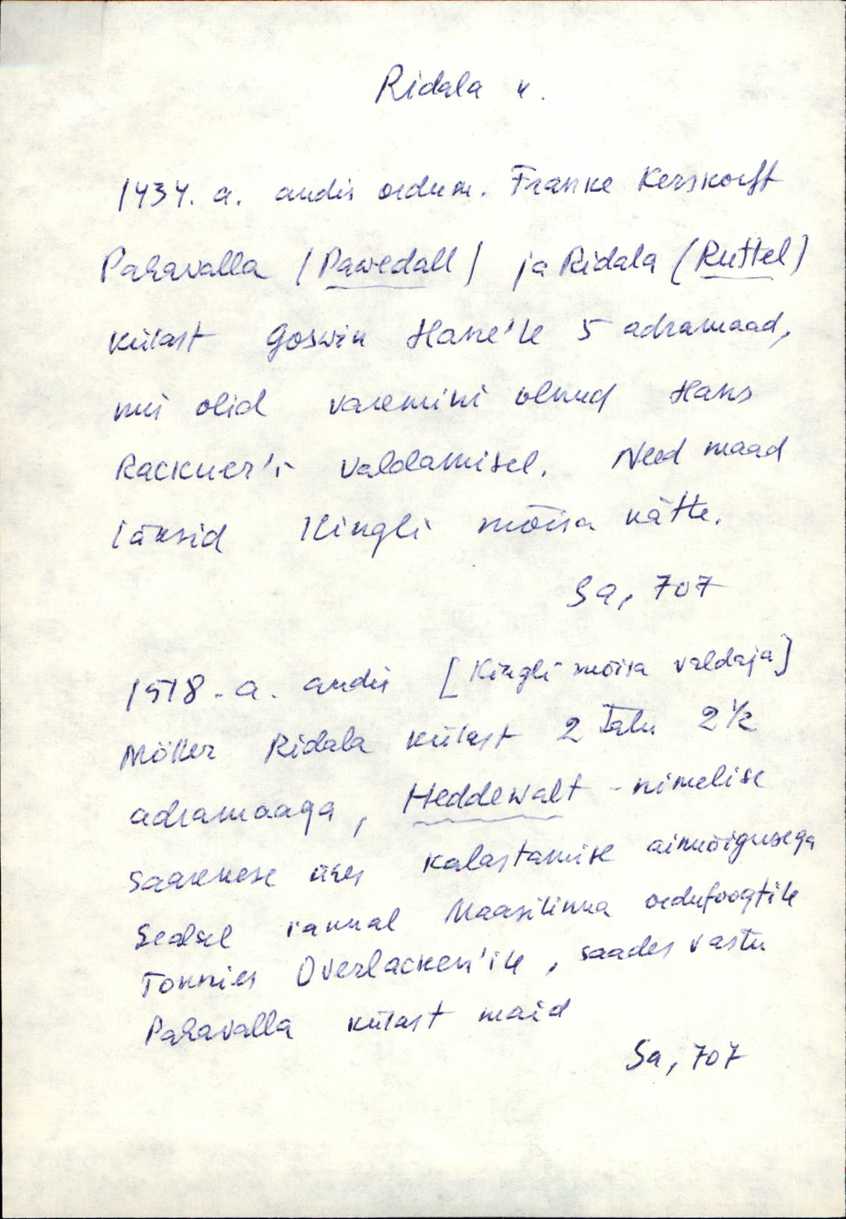 Ridala k.
1434. a. andis ordum. Franke Kerskorft
Pahavalla (Pawedall) ja Ridala (Ruttel)
külast Goswin Hane'le 5 adramaad,
mis olid varemini olnud Hans
Rackner'i valdamisel. Need maad
läksid Kingli mõisa kätte.
Sa, 707
1518. a. andis [Kingli mõisa valdaja]
Möller Ridala külast 2 talu 2 1/2
adramaaga, Heddewalt-nimelise
saarekese ühes kalastamise ainuõigusega
sealsel rannal Maasilinna ordufoogtile
Tonnies Overlacken'ile, saades vastu
Pahavalla külast maid
Sa, 707